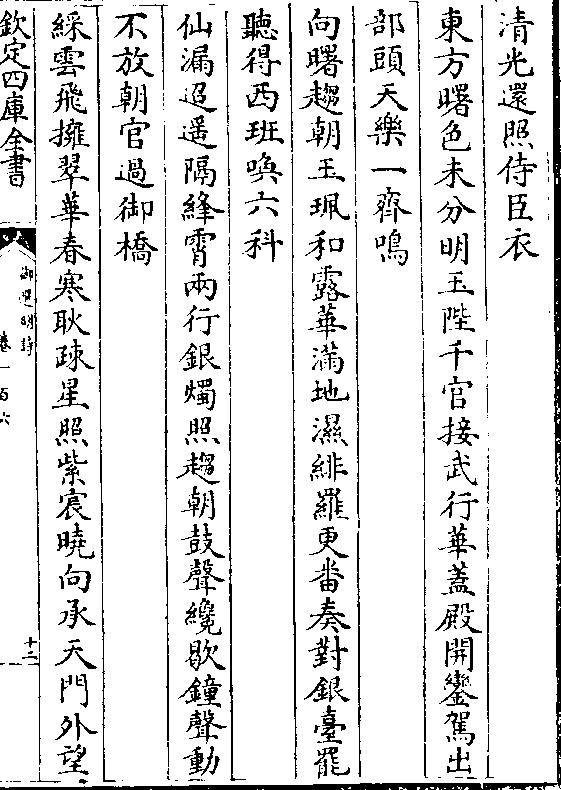 清光還照侍臣衣
東方曙色未分明玉陛千官接武行華蓋殿開鑾駕出
部頭天樂一齊鳴
向曙趨朝玉珮和露華滿地濕緋羅更番奏對銀臺罷
聽得西班喚六科
仙漏迢遥隔絳霄兩行銀燭照趨朝鼓聲纔歇鐘聲動
不放朝官過御橋
綵雲飛擁翠華春寒耿疎星照紫宸曉向承天門外望
欽定四庫全書
御選明詩
卷一百六
十二